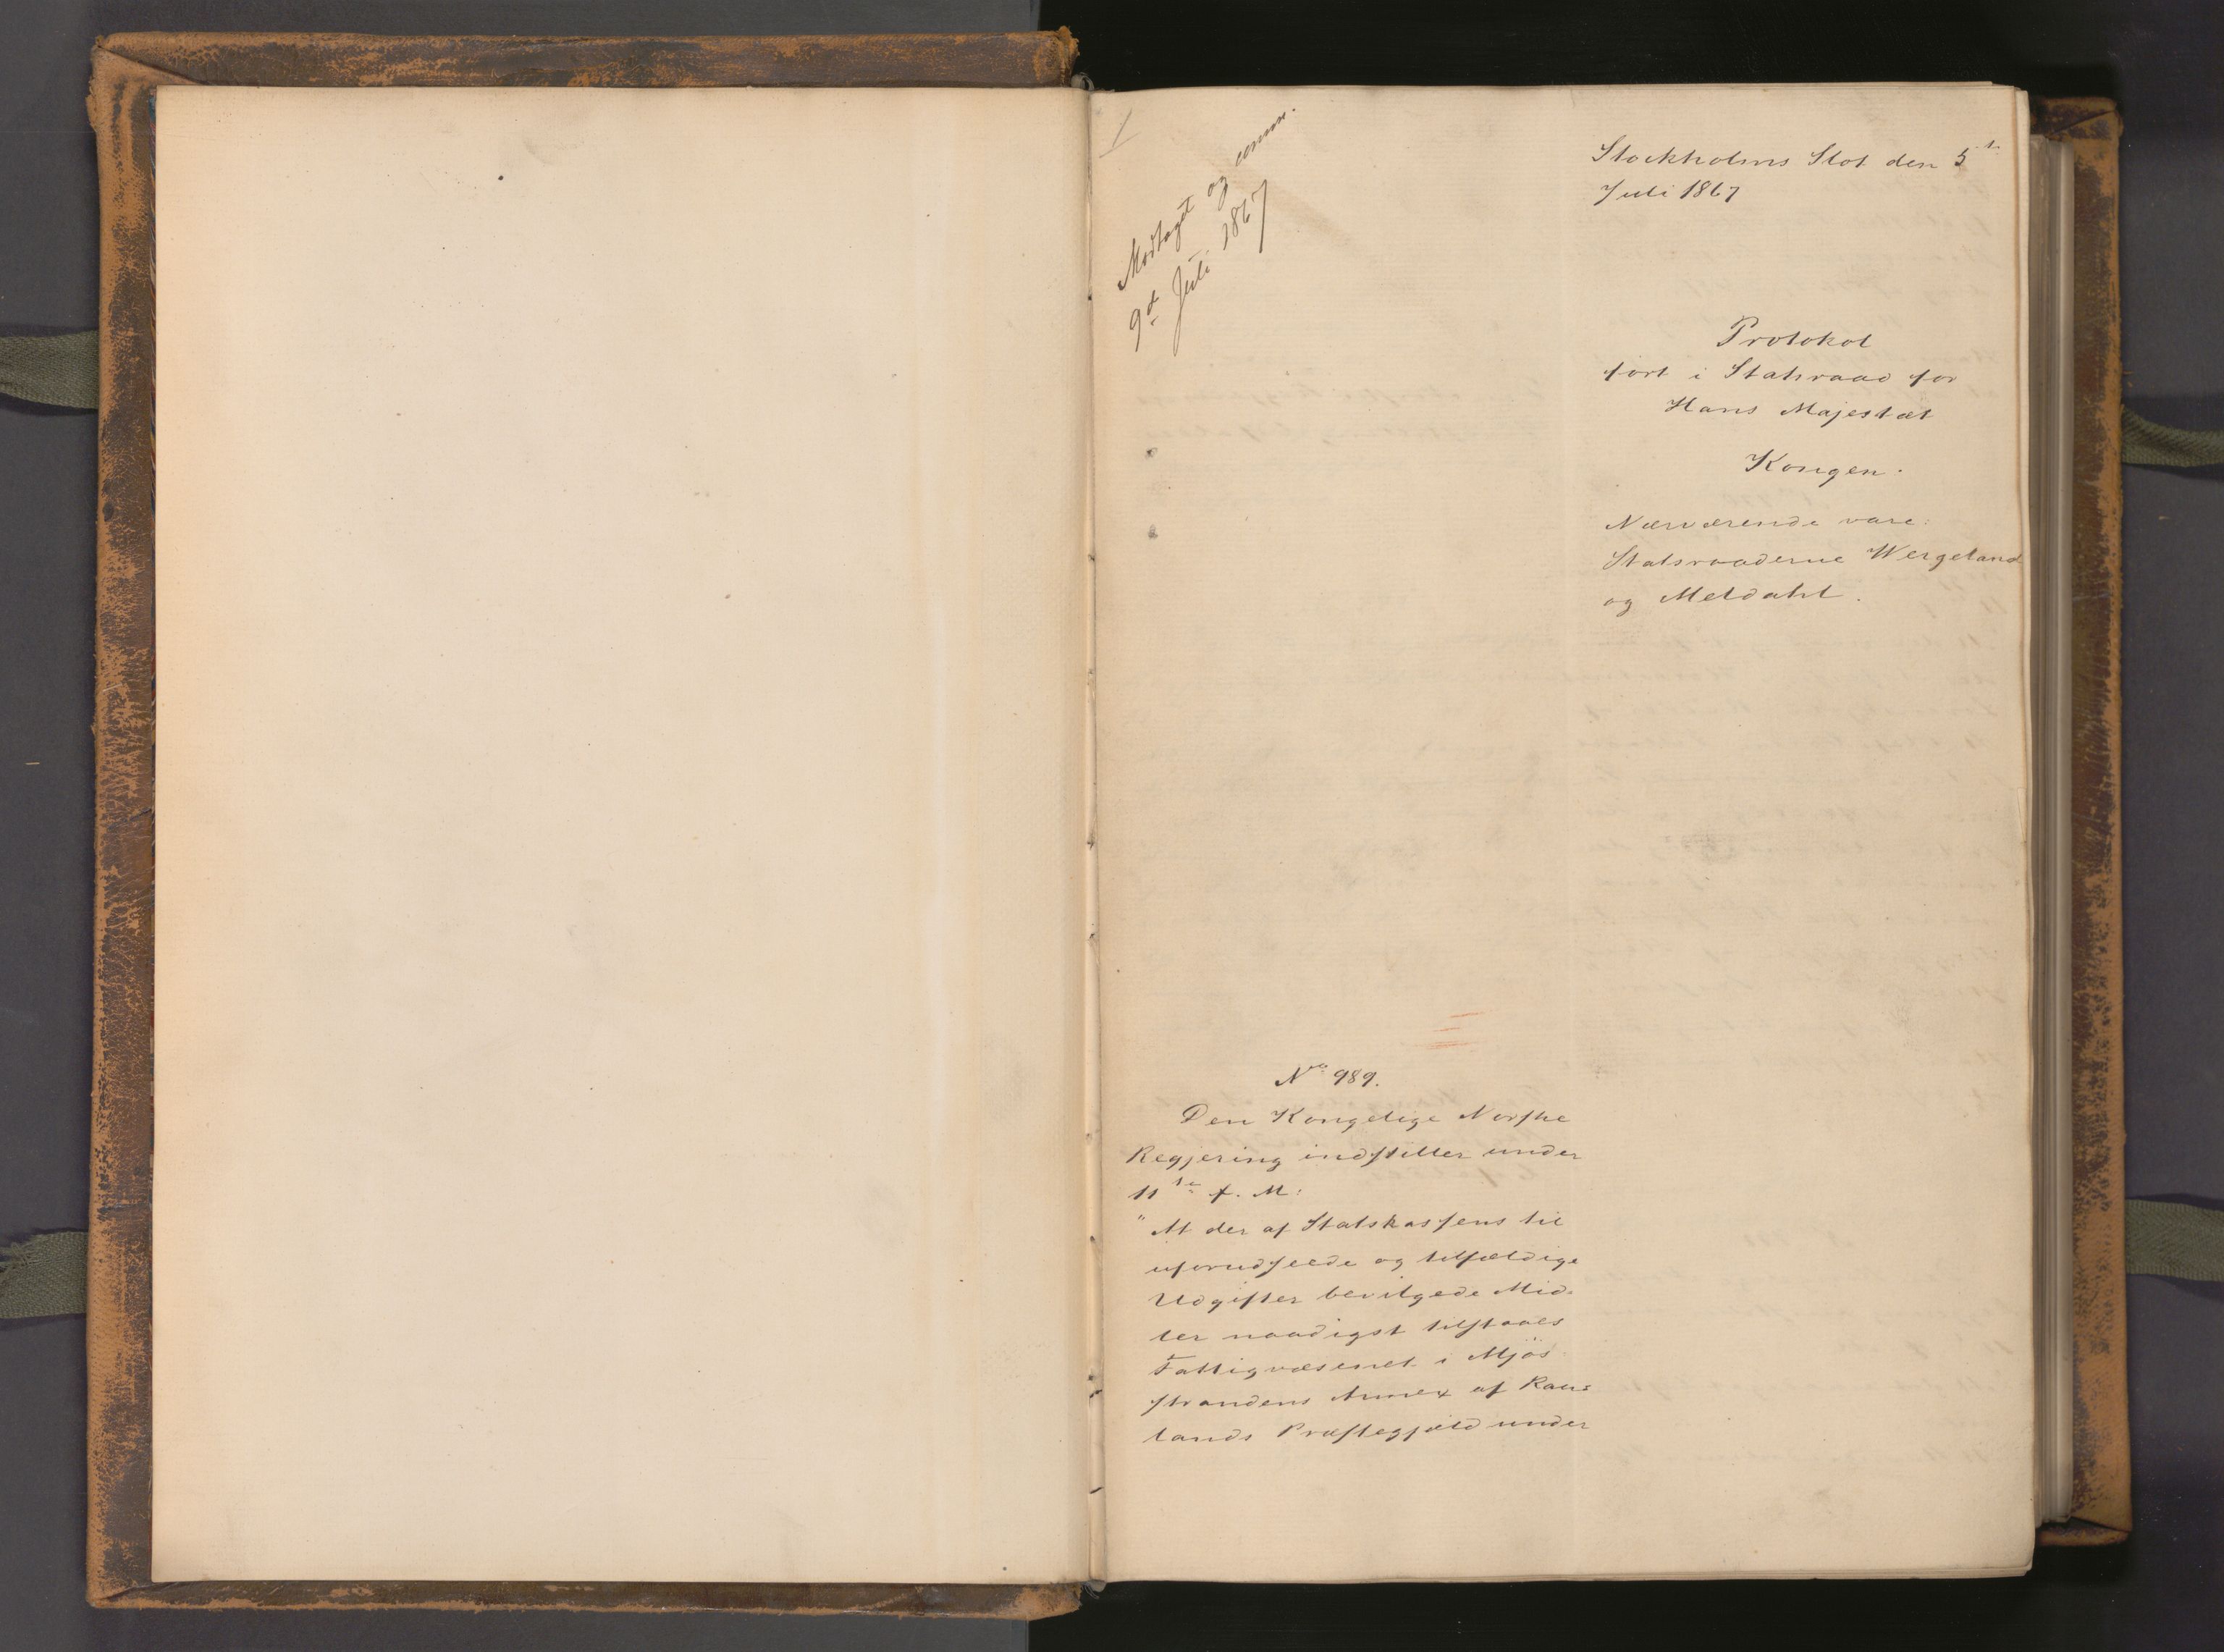 1
Modtaget og comm.
9d Juli 1867
Stockholms Slot den 5te
Juli 1867
Protokol
ført i Statsraad for
Hans Majestæt
Kongen.
Nærværende vare:
Statsraaderne Wergeland
og Meldahl.
No 989.
Den Kongelige Norske
Regjering indstiller under
11te f. M:
"At der af Statskassens til
uforudseede og tilfældige
Udgifter bevilgede Mid-
ler naadigst tilstaaes
Fattigvæsenet i Mjøs
strandens Annex af Rau-
lands Præstegjæld under